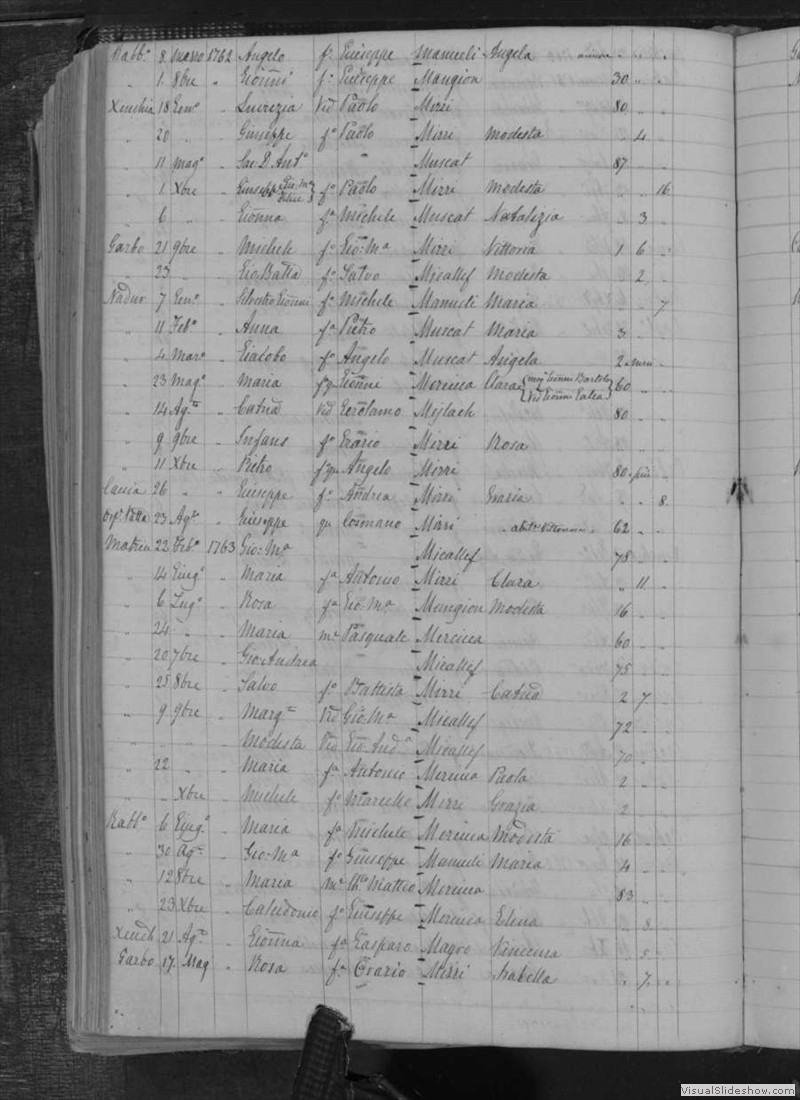 Rabb.º 8 Marzo 1762 Angelo fº Giuseppe Manueli Angela
„ 1 8bre „ Gioñi fº Giuseppe Mangion 30 „ „
Xeuchia 18 Genº „ Lucrezia Vid Paolo Mizzi 80 „ „
„ 20 „ „ Giuseppe fº Paolo Mizzi Modesta „ 4 „
„ 11 Magº „ Sac. D. Antº „ Muscat 87 „ „
„ 1 Xbre „ Giuseppe Gio: Mª Felice fº Paolo Mizzi Modesta „ „ 16
„ 6 „ „ Gioñna fª Michele Muscat Natalizia „ 3 „
Garbo 21 9bre „ Michele fº Gio: Mª Mizzi Vittoria 1 6 „
„ 23 „ „ Gio Batta fº Salvo Micallef Modesta „ 2 „
Nadur 7 Genº „ Silvestro Gioñni fº Michele Manueli Maria „ „ 7
„ 11 Febº „ Anna fª Pietro Muscat Maria 3 „ „
„ 4 Marº „ Giacobo fº Angelo Muscat Angela 2
„ 23 Magº „ Maria Gioñni Mercieca Clara 60 „ „
„ 14 Agº „ Catña Vid Gerolamo Mejlach 80 „ „
„ 9 9bre „ Infans fº Grazio Mizzi Rosa „ „ „
„ 11 Xbre „ Pietro Angelo Mizzi 80 più „
Caccia 26 „ „ Giuseppe fº Andrea Mizzi Grazia „ „ 8
23 Agº „ Giuseppe qu Cosmano Mizzi 62 „ „
22 Febº 1763 Gio: Mª „ Micallef 78 „ „
„ 14 Giugº „ Maria fª Antonio Mizzi Clara „ 11 „
„ 6 Lugº „ Rosa fª Gio Mª Mangion Modesta 16 „ „
„ 24 „ „ Maria mª Pasquale Mercieca 60 „ „
„ 20 7bre „ Gio: Andrea „ Micallef 75 „ „
„ 25 8bre „ Salvo fº Battista Mizzi Catña 2 7 „
„ 9 9bre „ Margª Vid Gio: Mª Micallef 72 „ „
„ „ „ „ Modesta Vid Gio: Andª Micallef 70 „ „
„ 22 „ „ Maria fª Antonio Mercieca Paola 2 „ „
„ „ Xbre „ Michele fº Marcello Mizzi Grazia 2 „ „
Rabbº 6 Giugº „ Maria fª Michele Mercieca Modesta 16 „ „
„ 30 Agº „ Gio: Mª fº Giuseppe Manueli Maria 4 „ „
„ 12 8bre „ Maria mª Matteo Mercieca 83 „ „
„ 23 Xbre „ Calcedonio fº Giuseppe Mercieca Elena „ 8 „
Xeuch 21 Agº „ Gioñna fª Gasparo Magro Vincenza „ 5 „
Garbo 17 Mag „ Rosa fª Grazio Mizzi Isabella „ 7 „
VisualSlideshow.com